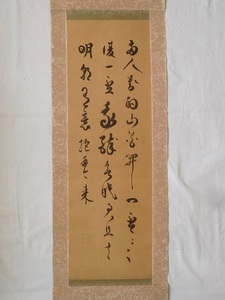 両人対酌山花開一盃一
復一盃我酔欲眠君且去
明朝有意抱琴来